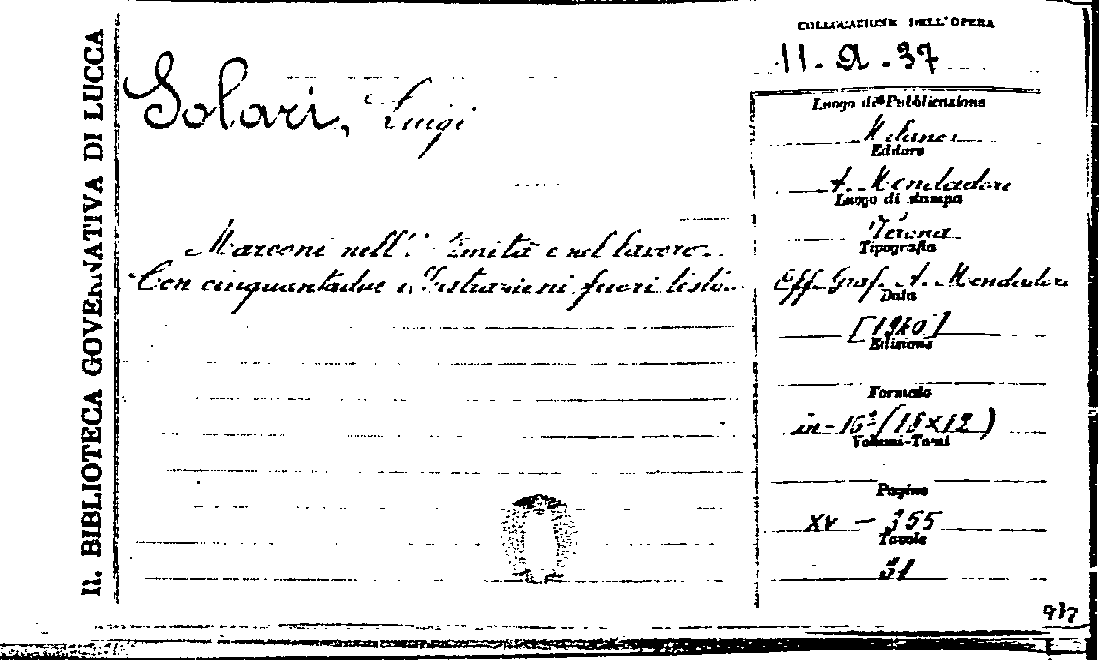 R. BIBLIOTECA GOVERNATIVA DI LUCCA
Solari, Luigi
Marconi nell'intimità e nel lavoro.
Con cinquantadue illustrazioni fuori testo.
COLLOCAZIONE DELL'OPERA
11. Q. 37
Luogo di Pubblicazione
Milano
Editore
A. Mondadori
Luogo di stampa
Verona
Tipografia
Off. Graf. A. Mondadori
Data
[1940]
Edizione
Formato
in-16° (18x12)
Volumi-Tomi
Pagine
XV - 355
Tavole
51